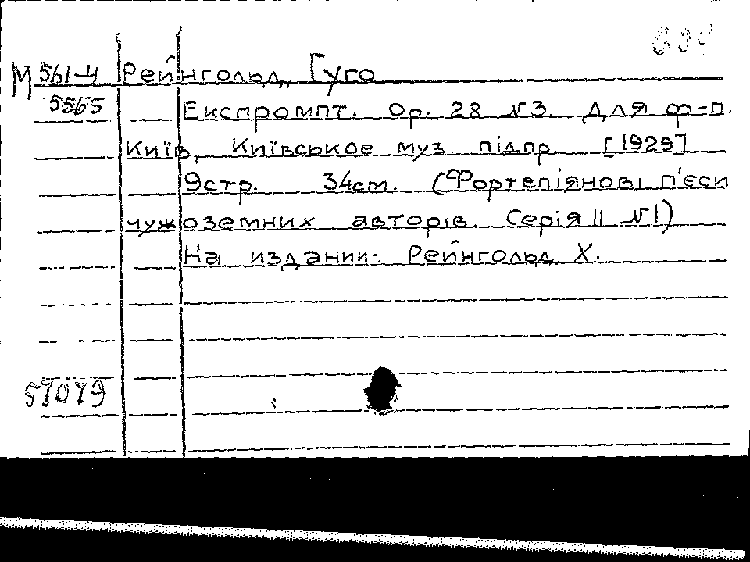 М 561-4 Рейнгольд, Гуго
5565 Експромпт. Op. 28 №3. Для ф-п.
Київ, Київське муз підпр [1929]
9стр. 34см. (Фортепіянові п'єси
чужоземних авторів. Серія II №1)
На издании: Рейнгольд Х.
57079